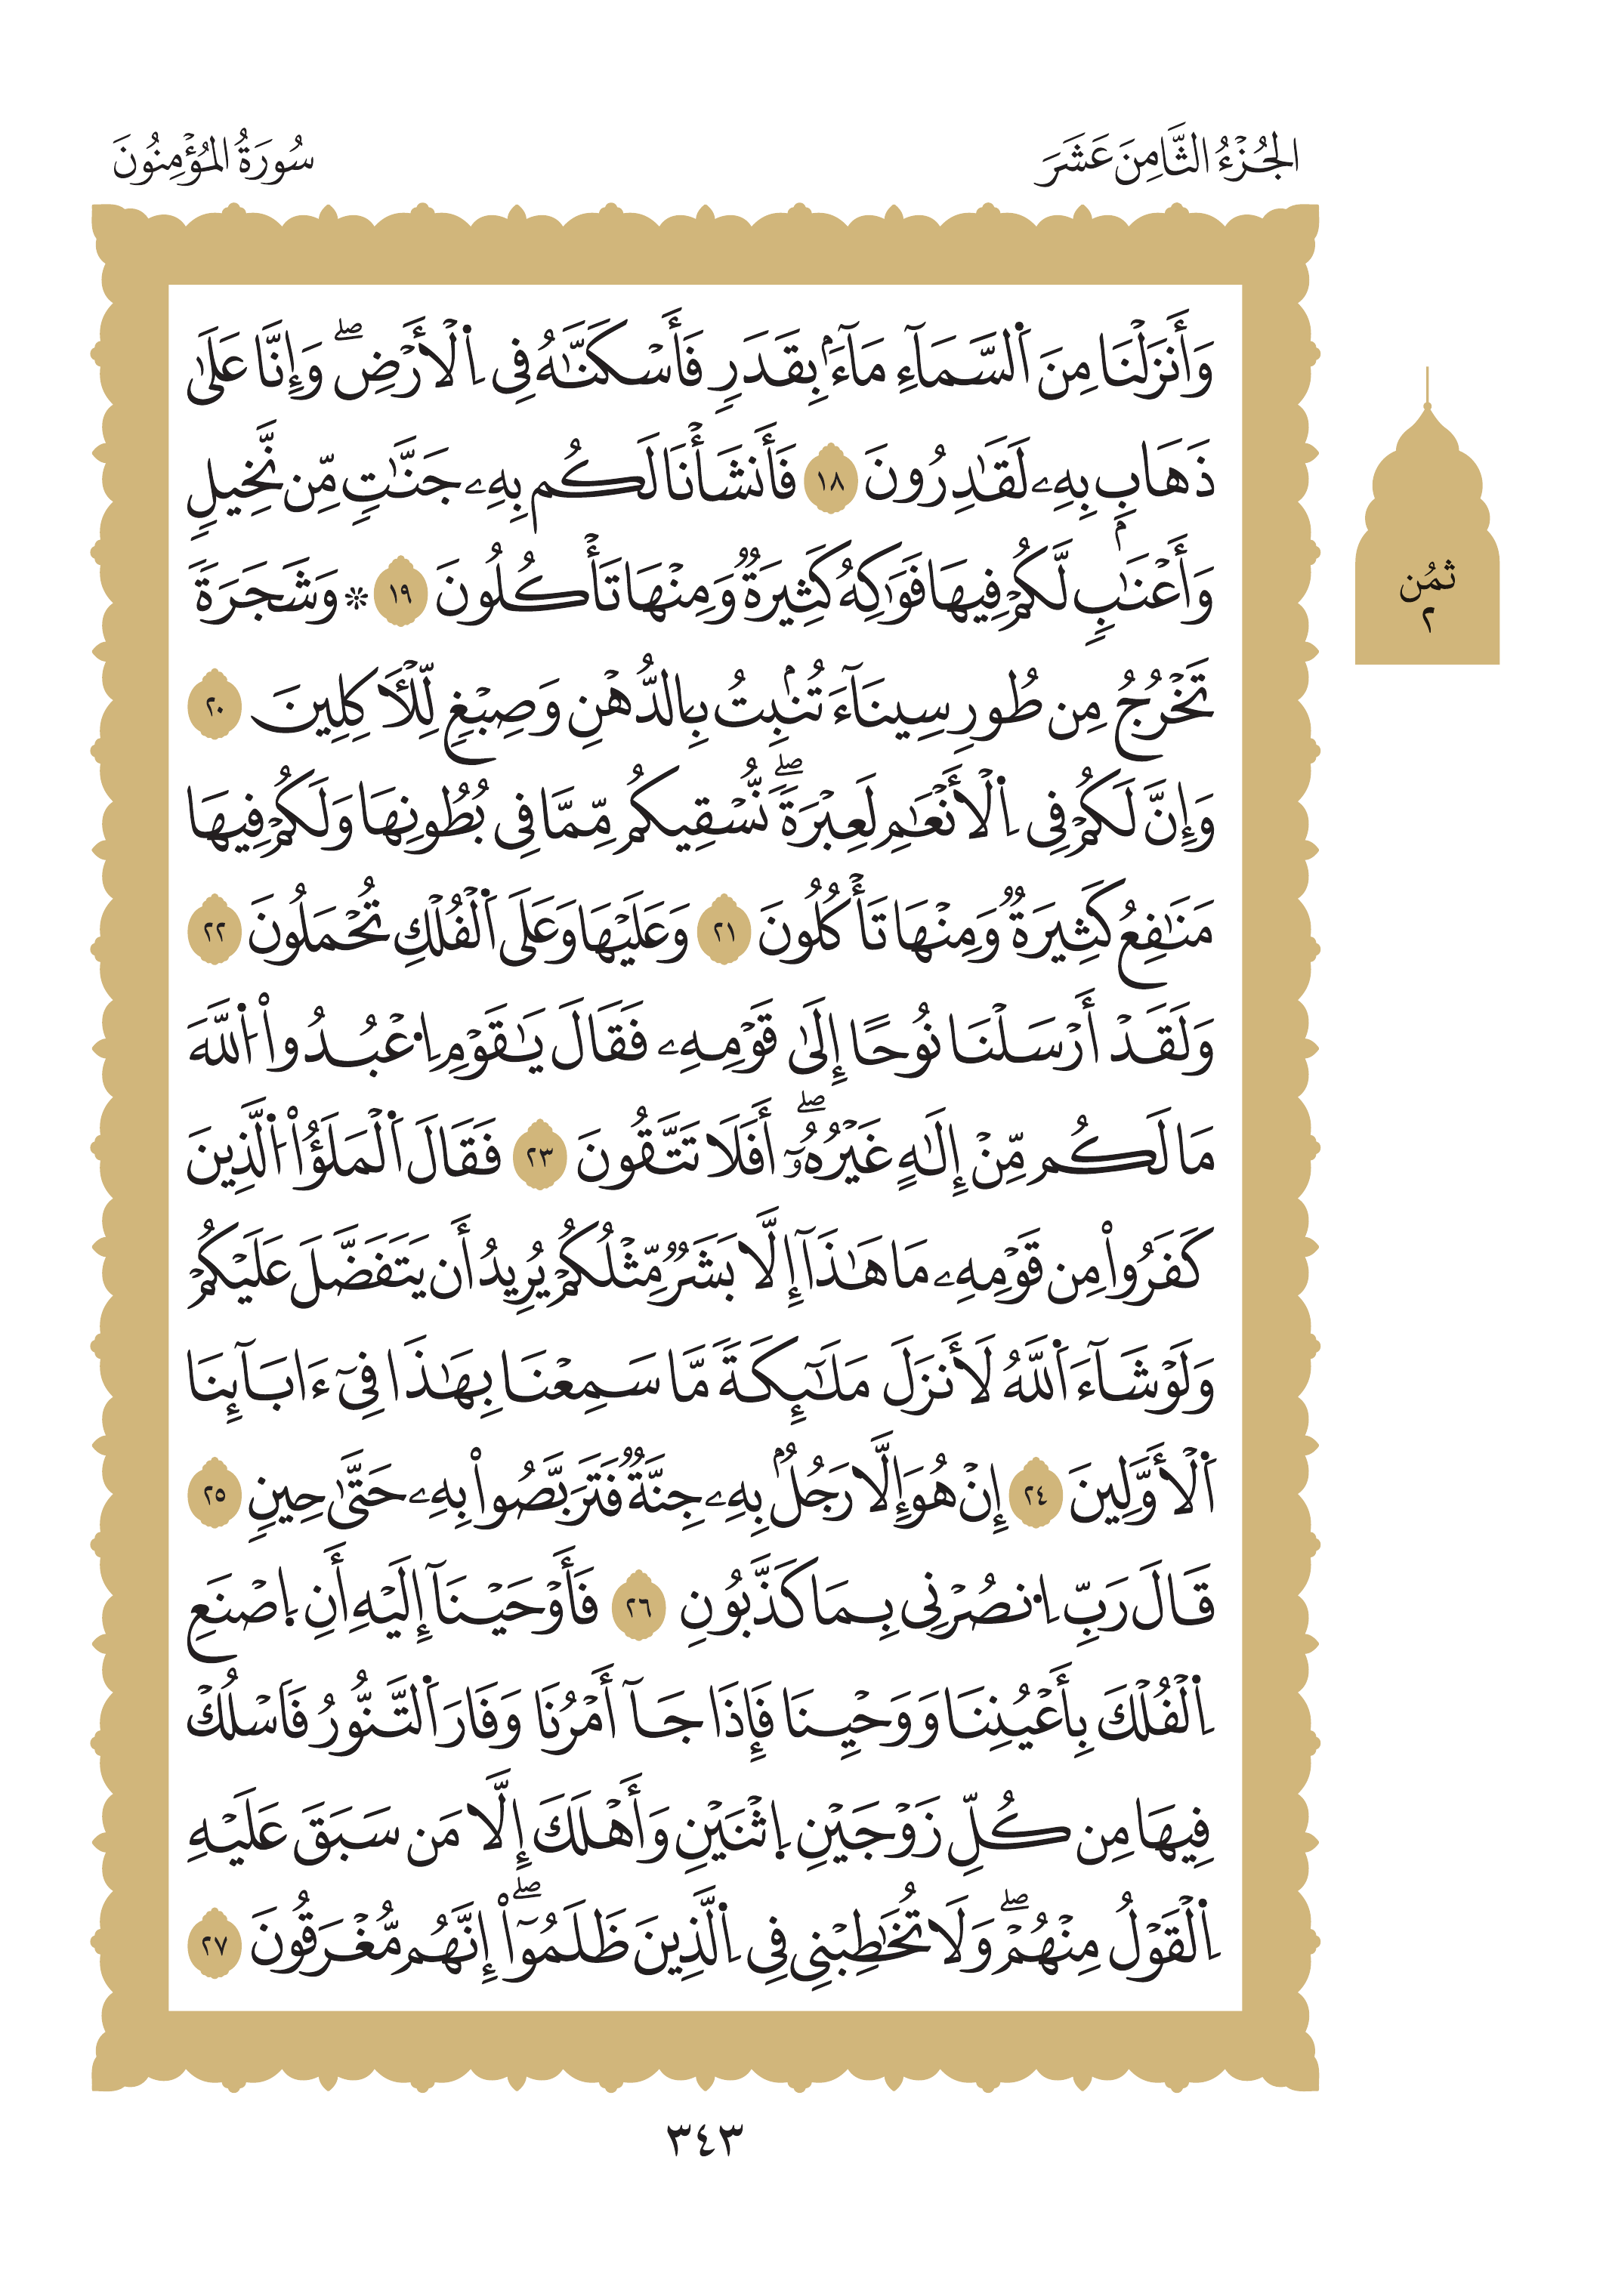 الجُزْءُ الثَّامِنَ عَشَرَ
سُورَةُ المُؤْمِنُونَ
وَأَنزَلْنَا مِنَ اَ۬لسَّمَآءِ مَآءَۢ بِقَدَرٖ فَأَسْكَنَّٰهُ فِے اِ۬لْأَرْضِۖ وَإِنَّا عَلَىٰ
ذَهَابِۢ بِهِۦ لَقَٰدِرُونَ ١٨ فَأَنشَأْنَا لَكُم بِهِۦ جَنَّٰتٖ مِّن نَّخِيلٖ
وَأَعْنَٰبٖ لَّكُمْ فِيهَا فَوَٰكِهُ كَثِيرَةٞ وَمِنْهَا تَأْكُلُونَ ١٩ ۞ وَشَجَرَةٗ
تَخْرُجُ مِن طُورِ سِينَآءَ تُنۢبِتُ بِالدُّهْنِ وَصِبْغٖ لِّلْأٓكِلِينَ ٢٠
وَإِنَّ لَكُمْ فِے اِ۬لْأَنْعَٰمِ لَعِبْرَةٗۖ نُّسْقِيكُم مِّمَّا فِے بُطُونِهَا وَلَكُمْ فِيهَا
مَنَٰفِعُ كَثِيرَةٞ وَمِنْهَا تَأْكُلُونَ ٢١ وَعَلَيْهَا وَعَلَى اَ۬لْفُلْكِ تُحْمَلُونَ ٢٢
وَلَقَدْ أَرْسَلْنَا نُوحًا إِلَىٰ قَوْمِهِۦ فَقَالَ يَٰقَوْمِ اِ۟عْبُدُواْ اُ۬للَّهَ
مَا لَكُم مِّنْ إِلَٰهٍ غَيْرُهُۥٓۖ أَفَلَا تَتَّقُونَ ٢٣ فَقَالَ اَ۬لْمَلَؤُاْ اُ۬لَّذِينَ
كَفَرُواْ مِن قَوْمِهِۦ مَا هَٰذَآ إِلَّا بَشَرٞ مِّثْلُكُمْ يُرِيدُ أَن يَتَفَضَّلَ عَلَيْكُمْ
وَلَوْ شَآءَ اَ۬للَّهُ لَأَنزَلَ مَلَٰٓئِكَةٗ مَّا سَمِعْنَا بِهَٰذَا فِےٓ ءَابَآئِنَا
اَ۬لْأَوَّلِينَ ٢٤ إِنْ هُوَ إِلَّا رَجُلُۢ بِهِۦ جِنَّةٞ فَتَرَبَّصُواْ بِهِۦ حَتَّىٰ حِينٖ ٢٥
قَالَ رَبِّ اِ۟نصُرْنِے بِمَا كَذَّبُونِ ٢٦ فَأَوْحَيْنَآ إِلَيْهِ أَنِ اِ۪صْنَعِ
اِ۬لْفُلْكَ بِأَعْيُنِنَا وَوَحْيِنَا فَإِذَا جَآ أَمْرُنَا وَفَارَ اَ۬لتَّنُّورُ فَاَسْلُكْ
فِيهَا مِن كُلِّ زَوْجَيْنِ اِ۪ثْنَيْنِ وَأَهْلَكَ إِلَّا مَن سَبَقَ عَلَيْهِ
اِ۬لْقَوْلُ مِنْهُمْۖ وَلَا تُخَٰطِبْنِے فِے اِ۬لَّذِينَ ظَلَمُوٓاْۖ إِنَّهُم مُّغْرَقُونَ ٢٧
ثمُن
٢
٣٤٣